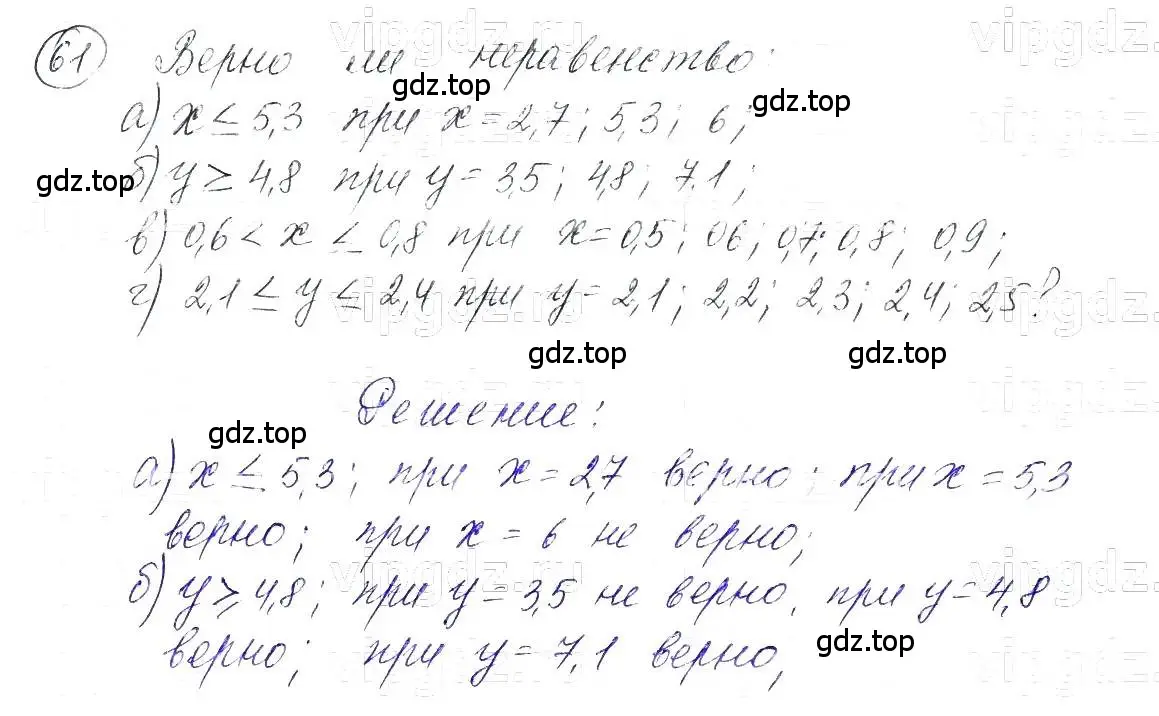 61 Верно ли неравенство:
а) x ≤ 5,3 при x = 2,7; 5,3; 6;
б) y ≥ 4,8 при y = 3,5; 4,8; 7.1;
в) 0,6 < x ≤ 0,8 при x = 0,5; 06; 0,7; 0,8; 0,9;
г) 2,1 ≤ y ≤ 2,4 при y = 2,1; 2,2; 2,3; 2,4; 2,5?
Решение:
а) x ≤ 5,3; при x = 2,7 верно; при x = 5,3
верно; при x = 6 не верно;
б) y ≥ 4,8; при y = 3,5 не верно, при y = 4,8
верно; при y = 7,1 верно,
gdz.top
gdz.top
gdz.top
gdz.top
gdz.top
gdz.top
gdz.top
vipgdz.ru
vipgdz.
vipgdz.ru
vipgdz.
vipgdz.ru
vipgdz.
vipgdz.ru
vipgdz.